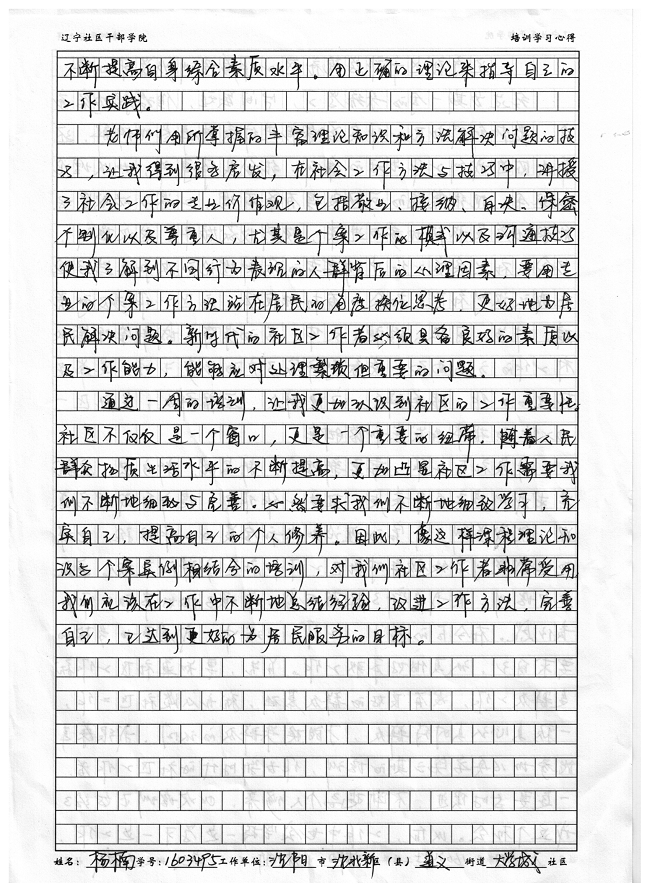 辽宁社区干部学院 培训学习心得
不断提高自身综合素质水平。用正确的理论来指导自己的
工作实践。
老师们用所掌握的丰富理论知识和方法解决问题的技
巧,让我得到很多启发,在社会工作方法与技巧中,讲授
了社会工作的专业价值观,包括敬业、接纳、自决、保密
个别化以及尊重人,尤其是个案工作的模式以及沟通技巧
使我了解到不同行为表现的人群背后的心理因素,要用专
业的个案工作方法站在居民的角度换位思考,更好地为居
民解决问题。新时代的社区工作者必须具备良好的素质以
及工作能力,能够应对处理繁琐但重要的问题。
通过一周的培训,让我更加认识到社区的工作重要性。
社区不仅仅是一个窗口,更是一个重要的纽带。随着人民
群众物质生活水平的不断提高,更加凸显社区工作需要我
们不断地细致与完善。必然要求我们不断地细致学习,充
实自己,提高自己的个人修养。因此,像这样课程理论知
识与个案实例相结合的培训,对我们社区工作者非常受用,
我们应该在工作中不断地总结经验,改进工作方法,完善
自己,已达到更好的为居民服务的目标。
姓名: 杨楠 学号: 1603495 工作单位: 沈阳 市 沈北新 区(县) 道义 街道 大学城 社区